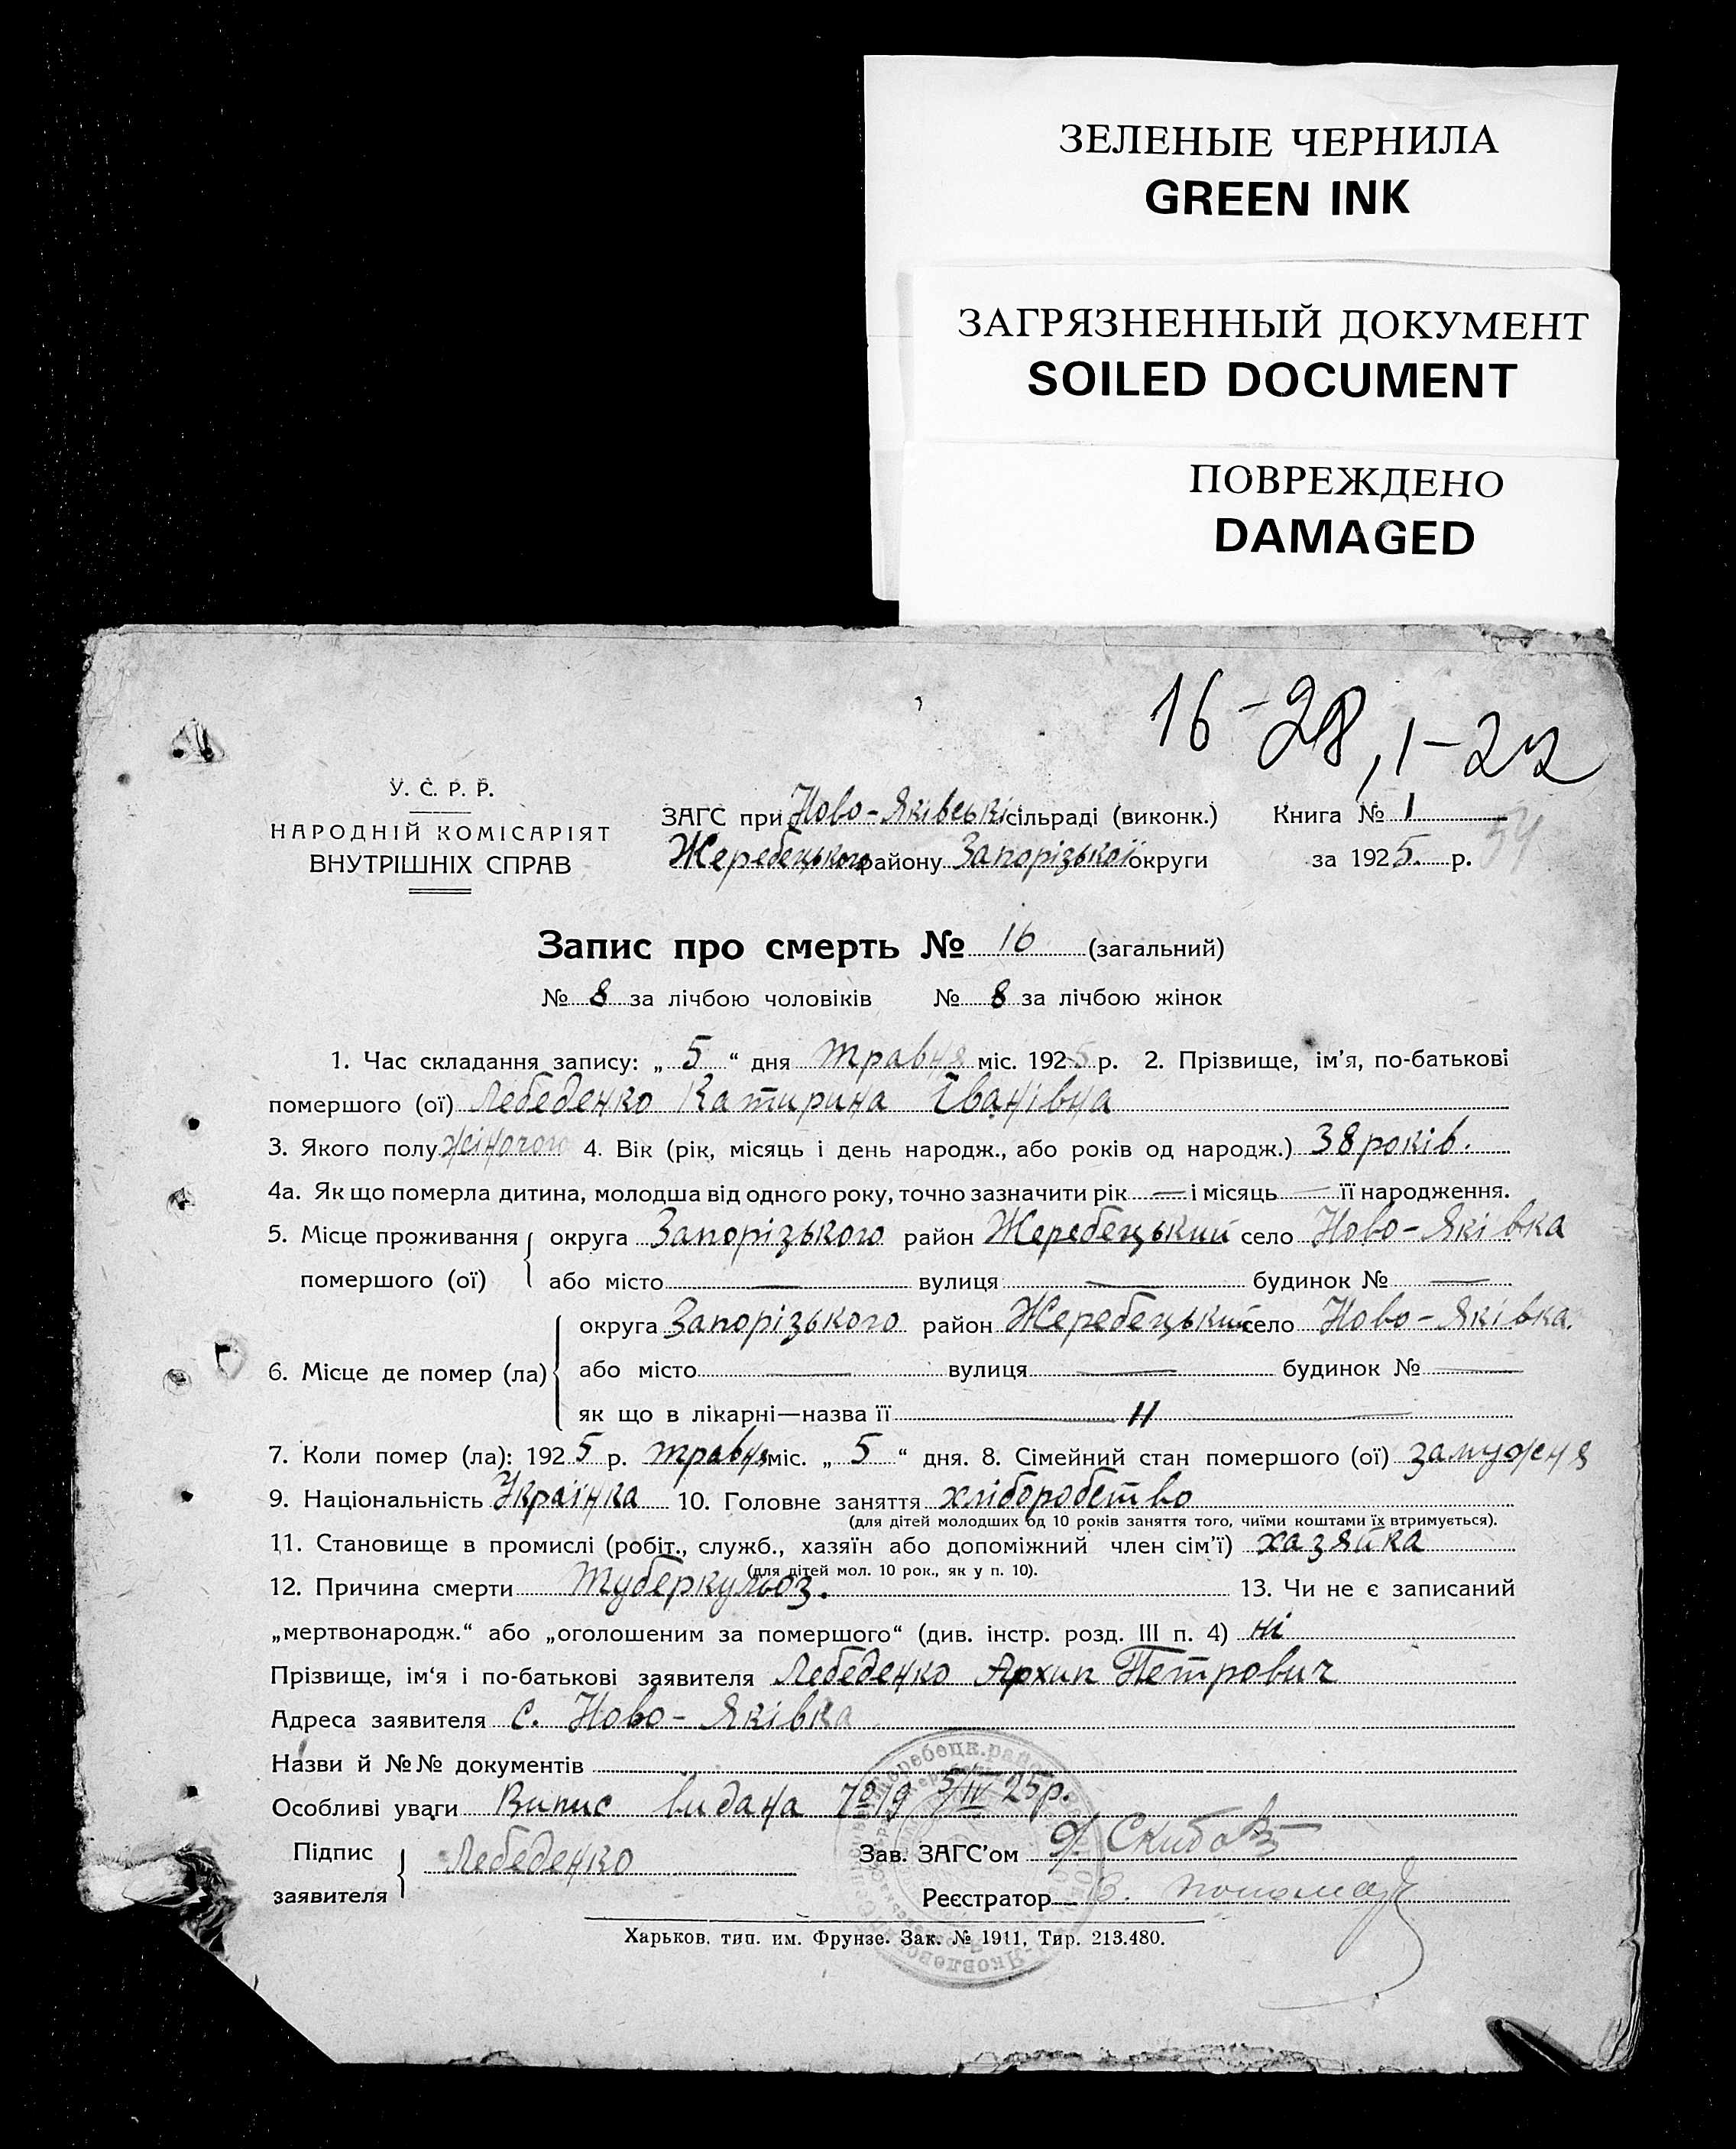 ЗЕЛЕНЫЕ ЧЕРНИЛА
GREEN INK
ЗАГРЯЗНЕННЫЙ ДОКУМЕНТ
SOILED DOCUMENT
ПОВРЕЖДЕНО
DAMAGED
16-28, 1-22
У. С. Р. Р.
НАРОДНІЙ КОМІСАРІЯТ
ВНУТРІШНІХ СПРАВ
ЗАГС при Ново-Яківські сільраді (виконк.) Книга № 1
Жеребецького району Запорізької округи за 1925. р. 54
Запис про смерть № 16 (загальний)
№ 8 за лічбою чоловіків № 8 за лічбою жінок
1. Час складання запису: „ 5 “ дня травня міс. 1925 р. 2. Прізвище, ім’я, по-батькові
помершого (ої) Лебеденко Катирина Іванівна
3. Якого полу жіночого 4. Вік (рік, місяць і день народж., або років од народж.) 38 років.
4а. Як що померла дитина, молодша від одного року, точно зазначити рік — і місяць — її народження.
5. Місце проживання округа Запорізького район Жеребецький село Ново-Яківка
помершого (ої) або місто — вулиця — будинок № —
округа Запорізького район Жеребецький село Ново-Яківка.
6. Місце де помер (ла) або місто — вулиця — будинок № —
як що в лікарні—назва її — „ —
7. Коли помер (ла): 1925 р. травня міс. „ 5 “ дня. 8. Сімейний стан помершого (ої) замужня
9. Національність Українка 10. Головне заняття хліборобство
(для дітей молодших од 10 років заняття того, чиїми коштами їх втримується).
11. Становище в промислі (робіт., служб., хазяїн або допоміжний член сім’ї) хазяйка
(для дітей мол. 10 рок., як у п. 10).
12. Причина смерти Туберкульоз. 13. Чи не є записаний
„мертвонародж.“ або „оголошеним за помершого“ (див. інстр. розд. III п. 4) ні
Прізвище, ім‘я і по-батькові заявителя Лебеденко Архип Петрович
Адреса заявителя с. Ново-Яківка
Назви й №№ документів
Особливі уваги Випис видана 5/IV 25р.
Підпис Лебеденко Зав. ЗАГС’ом Скиба
заявителя Реєстратор В. Пономар
Харьков. тип. им. Фрунзе. Зак. № 1911, Тир. 213.480.